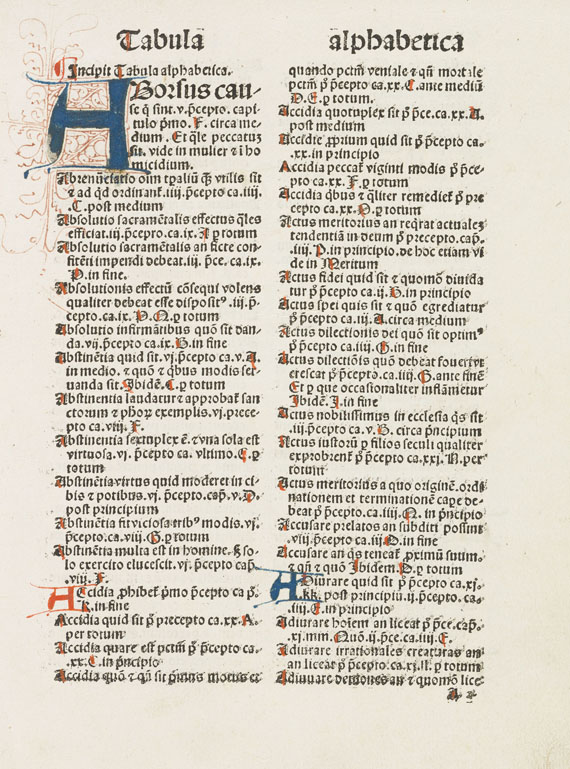 Tabula alphabetica
Incipit Tabula alphabetica.
ABorsus cau-
se q̃ sint .v. p̃cepto. capi
tulo p̃mo .F. circa me-
dium . Et q̃le peccatuꝫ
sit. vide in mulier ⁊ ĩ ho
micidium.
Abrenũciatio oĩm tp̃aliũ q̃ꝫ vtilis sit
⁊ ad qd̃ ordinant̃ .iiij. p̃cepto ca.iiij
.C. post medium
Absolutio sacramẽtalis effectus q̃les
efficiat .iij. p̃cepro .ca.ix. A ꝑ totum
Absolutio sacramẽtalis an ficte con-
fitẽti impendi debeat .iij. p̃ce. ca.ix.
P. in fine.
Absolutionis effectũ cõsequi volens
qualiter debeat esse dispositꝰ .iij. p̃-
cepto ca.ix. P. Q. ꝑ totum
Absolutio infirmãtibus quõ sit dan-
da. vij. p̃cepto ca.ix. G. in fine
Abstinẽtia quid sit. vj. p̃cepto ca.v. A.
in medio. ⁊ quõ ⁊ q̃bus modis ser
uanda sit. Ibidẽ. C. ꝑ totum
Abstinentia laudatur ⁊ approbat̃ san
ctorum ⁊ ph̃oꝝ exemplis. vj. prece-
pto ca. viij. F.
Abstinentia sextuplex ẽ. ⁊ vna sola est
virtuosa. vj. p̃cepto ca. vltimo. C. ꝑ
totum
Abstinẽtia virtus quid moderet̃ in ci-
bis ⁊ potibus. vj. p̃cepto cap̃. v. D.
post principium
Abstinẽtia fit viciosa tribꝰ modis. vj.
p̃cepto. ca.viij. G. ꝑ totum
Abstinẽtia multa est in homine. ꝫ so-
lo exercito elucescit. vj. p̃cepto cap̃
.viij. F.
Accidia ꝓhibet̃ p̃mo p̃cepto ca p̃.
K. in fine
Accidia quid sit p̃ precepto ca.xx. A.
per totum
Accidia quare est pctm̃ p̃ p̃cepto ca-
.xx. C. in p̃ncipio
Accidia quõ ⁊ qñ sit p̃mus motus ⁊
quando pctm̃ veniale ⁊ qñ mortale
pctm̃ p̃ p̃cepto ca.xx. C. ante mediũ
D. E. ꝑ totum.
Accidia quotuplex sit p̃ p̃ce.ca.xx. A.
post medium
Accidie ꝓprium quid sit p̃ p̃cepto ca
.xx. in principio
Accidia peccat̃ viginti modis p̃ p̃ce-
pto ca.xx. F. ꝑ totum
Accidia q̃bus ⁊ q̃liter remediet̃ p̃ pre
cepto ca.xx. ꝑ totum
Actus meritorius an req̃rat actualeꝫ
tendentiã in deum p̃ precepto. cap̃.
.iiij. P. in principio. de hoc etiam vi
de in Meritum
Actus fidei quid sit ⁊ quomõ diuida
tur p̃ p̃cepto ca.ij. B. in principio
Actus spei quis sit ⁊ quõ egrediatur
p̃ p̃cepto ca.iij. A. circa medium
Actus dilectionis dei quõ sit optimꝰ
p̃ p̃cepto ca.iiij. G. in fine
Actus dilectiõis quõ debeat foueri ⁊
crescat p̃ p̃cepto .ca.iiij. G. ante finẽ
Et ꝑ que occasionaliter inflãmetur
Ibidẽ. I. in fine
Actus nobilissimus in ecclesia q̃s sit
.iij. p̃cepto ca.v. G. circa p̃ncipium
Actus iustorũ p̃ filios seculi qualiter
exprobrent̃ p̃ p̃cepto ca.xxj. N. per
totum
Actus meritorius a quo originẽ. ordi
nationem et terminationẽ cape de-
beat p̃ p̃cepto ca.iiij. in p̃ncipio
Accusare prelatos an subditi possint
.viij. p̃cepto ca.iij. in fine
Accusare an q̃s teneat̃ ꝓximũ suũm.
⁊ qñ ⁊ quõ Ibidem. P. ꝑ totum
Adiurare quid sit p̃ p̃cepto ca.xj.
kk. post principiũ. ij. p̃cepto ca.
.iiij. E. in principio
Adiurare hoĩem an liceat p̃ p̃ce. cap̃.
.xj. mm. Quõ .ij. p̃ce. ca.iiij. E.
Adiurare irrationales creaturas an
an liceat p̃ p̃cepto .ca.xj. ll. ꝑ totum
Adiuuare demones an ⁊ quomõ lice
A 2